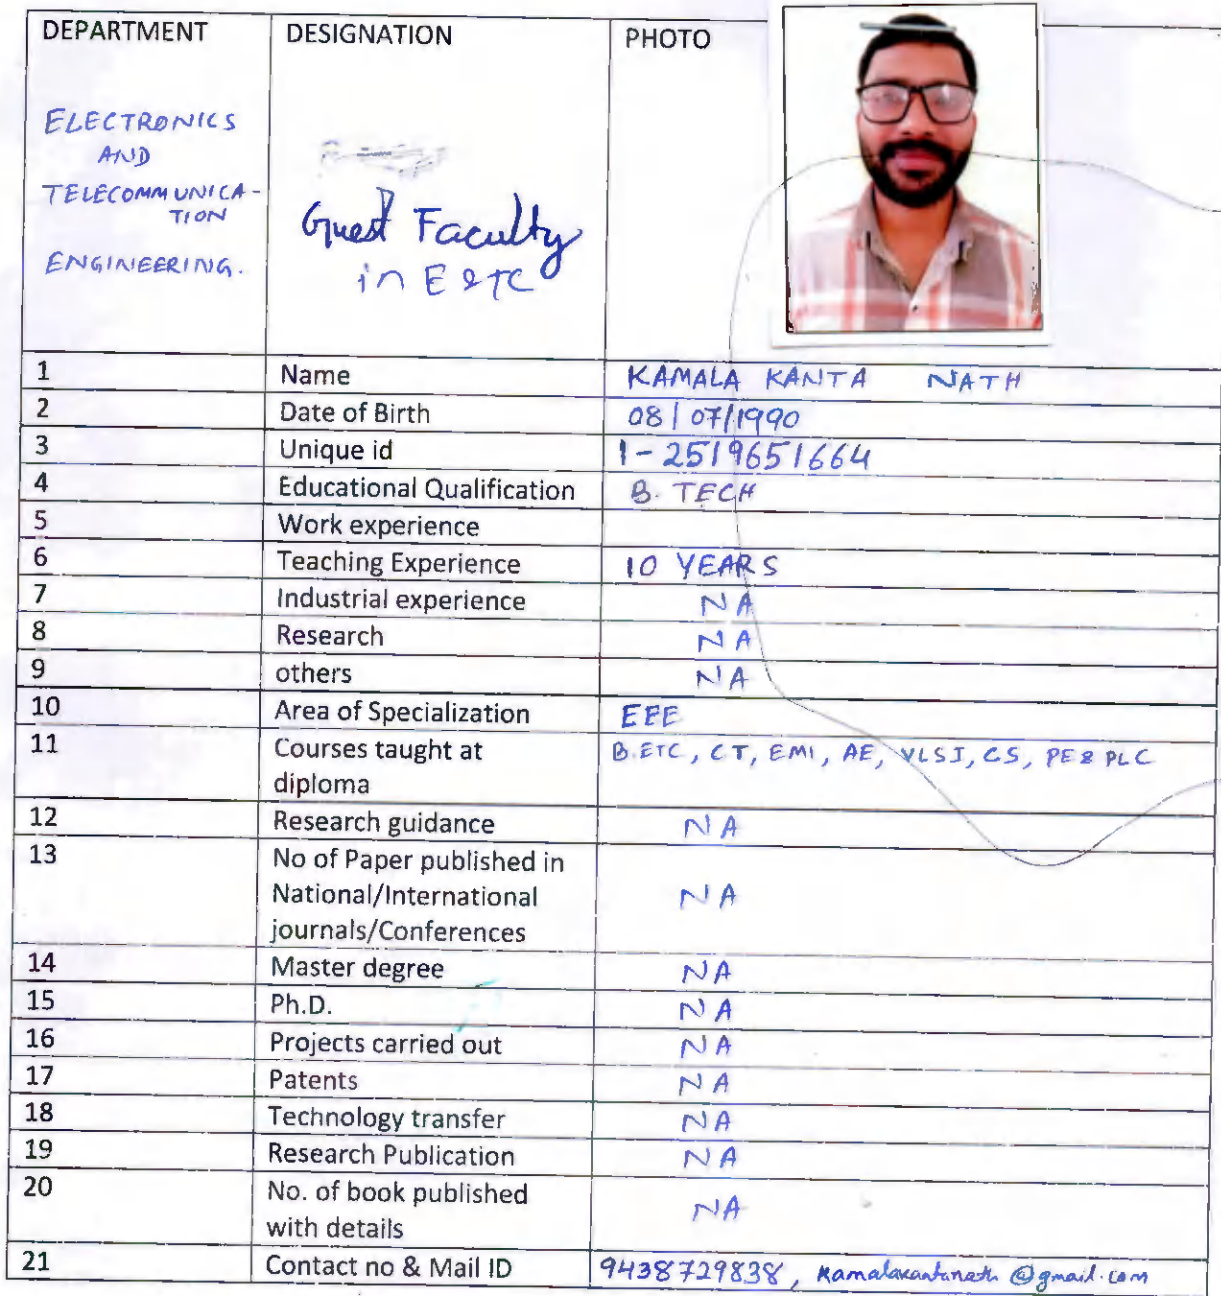 DEPARTMENT DESIGNATION PHOTO
ELECTRONICS
AND
TELECOMMUNICA-
TION
ENGINEERING.
Guest Faculty
in E&TC
1 Name KAMALA KANTA NATH
2 Date of Birth 08/07/1990
3 Unique id 1-2519651664
4 Educational Qualification B. TECH
5 Work experience
6 Teaching Experience 10 YEARS
7 Industrial experience NA
8 Research NA
9 others NA
10 Area of Specialization EEE
11 Courses taught at B.ETC, CT, EMI, AE, VLSI, CS, PE & PLC
diploma
12 Research guidance NA
13 No of Paper published in
National/International NA
journals/Conferences
14 Master degree NA
15 Ph.D. NA
16 Projects carried out NA
17 Patents NA
18 Technology transfer NA
19 Research Publication NA
20 No. of book published NA
with details
21 Contact no & Mail ID 9438729838, kamalakantanath@gmail.com